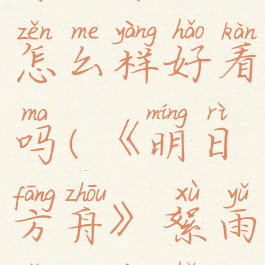 zěn me yàng hǎo kàn
怎么样好看
ma míng rì
吗(《明日
fāng zhōu xù yǔ
方舟》絮雨